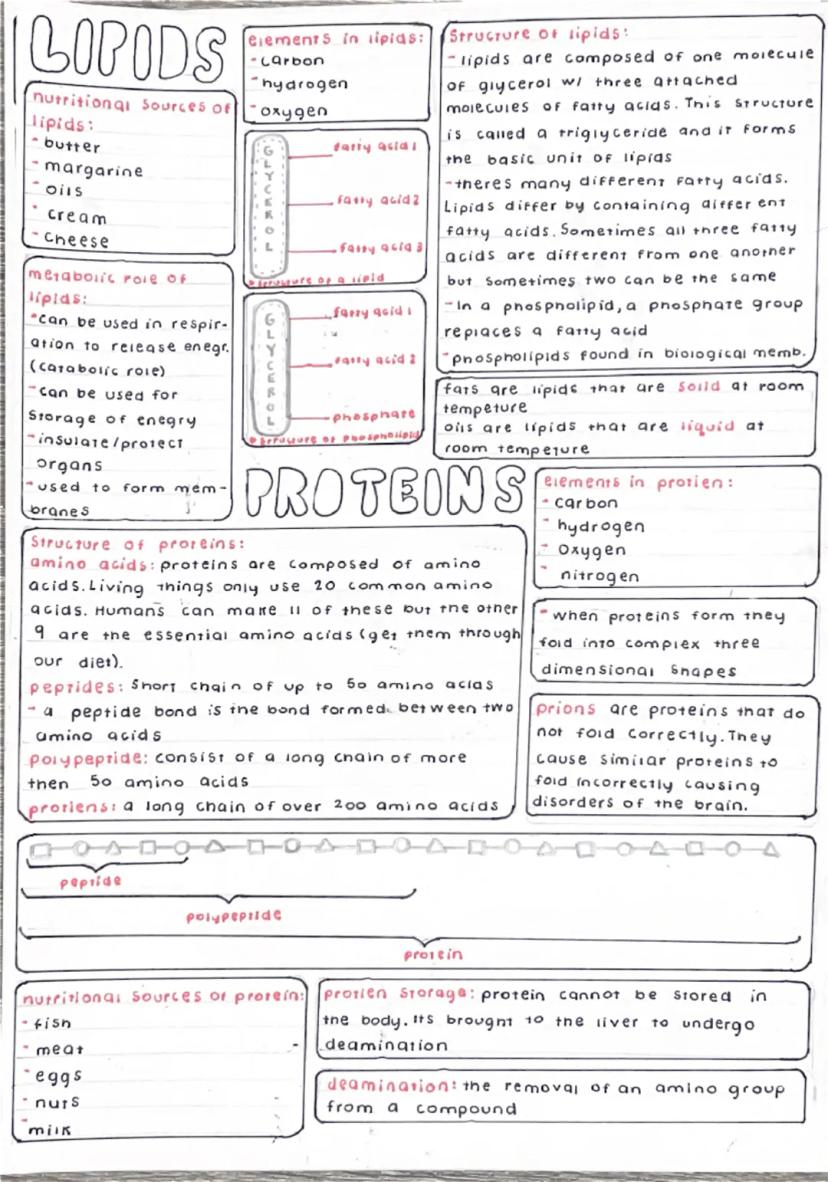 LIPIDS
nutritional sources of
lipids:
- butter
- margarine
- oils
- cream
- cheese
metabolic role of
lipids:
- can be used in respir-
ation to release enegr.
(catabolic role)
- can be used for
storage of enegry
- insulate/protect
organs
- used to form mem-
branes
elements in lipids:
- carbon
- hydrogen
- oxygen
GLYCEROL
fatty acid 1
fatty acid 2
fatty acid 3
structure of a lipid
GLYCEROL
fatty acid 1
fatty acid 2
phosphate
structure of phospholipid
Structure of lipids:
- lipids are composed of one molecule
of glycerol w/ three attached
molecules of fatty acids. This structure
is called a triglyceride and it forms
the basic unit of lipids
- theres many different fatty acids.
Lipids differ by containing different
fatty acids. Sometimes all three fatty
acids are different from one another
but sometimes two can be the same
- In a phospholipid, a phosphate group
replaces a fatty acid
- phospholipids found in biological memb.
fats are lipids that are soild at room
tempeture
oils are lipids that are liquid at
room tempeture
PROTEINS
Structure of proteins:
amino acids: proteins are composed of amino
acids. Living things only use 20 common amino
acids. Humans can make 11 of these but the other
9 are the essential amino acids (get them through
our diet).
peptides: short chain of up to 50 amino acids
- a peptide bond is the bond formed between two
amino acids
polypeptide: consist of a long chain of more
then 50 amino acids
protiens: a long chain of over 200 amino acids
elements in protien:
- carbon
- hydrogen
- oxygen
- nitrogen
- when proteins form they
fold into complex three
dimensional shapes
prions are proteins that do
not fold correctly. They
cause similar proteins to
fold incorrectly causing
disorders of the brain.
peptide
polypeptide
protein
nutritional sources of protein:
- fish
- meat
- eggs
- nuts
- milk
protien storage: protein cannot be stored in
the body. Its brought to the liver to undergo
deamination
deamination: the removal of an amino group
from a compound